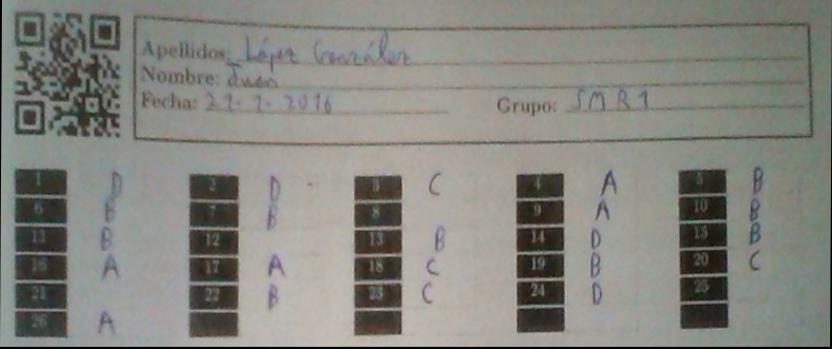 Apellidos: López González
Nombre: Juan
Fecha: 21-1-2016 Grupo: SMR1
1 D 2 D 3 C 4 A 5 B
6 B 7 B 8 9 A 10 B
11 B 12 13 B 14 D 15 B
16 A 17 A 18 C 19 B 20 C
21 22 B 23 C 24 D 25
26 A